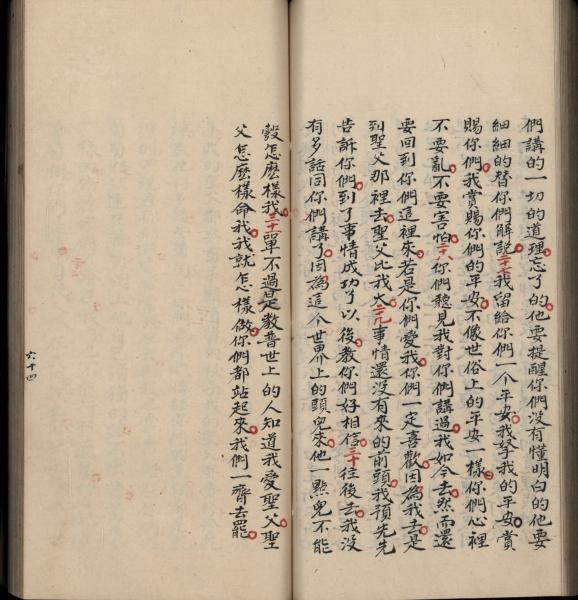 們講的一切的道理忘了的他要提醒你們没有懂明白的他要
細細的替你們解説二十七我留給你們一个平安我拏我的平安賞
賜你們我賞賜你們的平安不像世俗上的平安一樣你們心裡
不要亂不要害怕二十八你們聽見我對你們講過我如今去然而還
要回到你們這裡來若是你們愛我你們一定喜歡因為我去是
到聖父那裡去聖父比我大二十九事情還没有來的前頭我預先先
告訴你們到了事情成功了以後教你們好相信三十往後去我没
有多話同你們講了因為這个世界上的頭兒來他一㸃兒不能
彀怎麽樣我三十一單不過是教普世上的人知道我愛聖父聖
父怎麽樣命我我就怎樣做你們都站起來我們一齊去罷
六十四